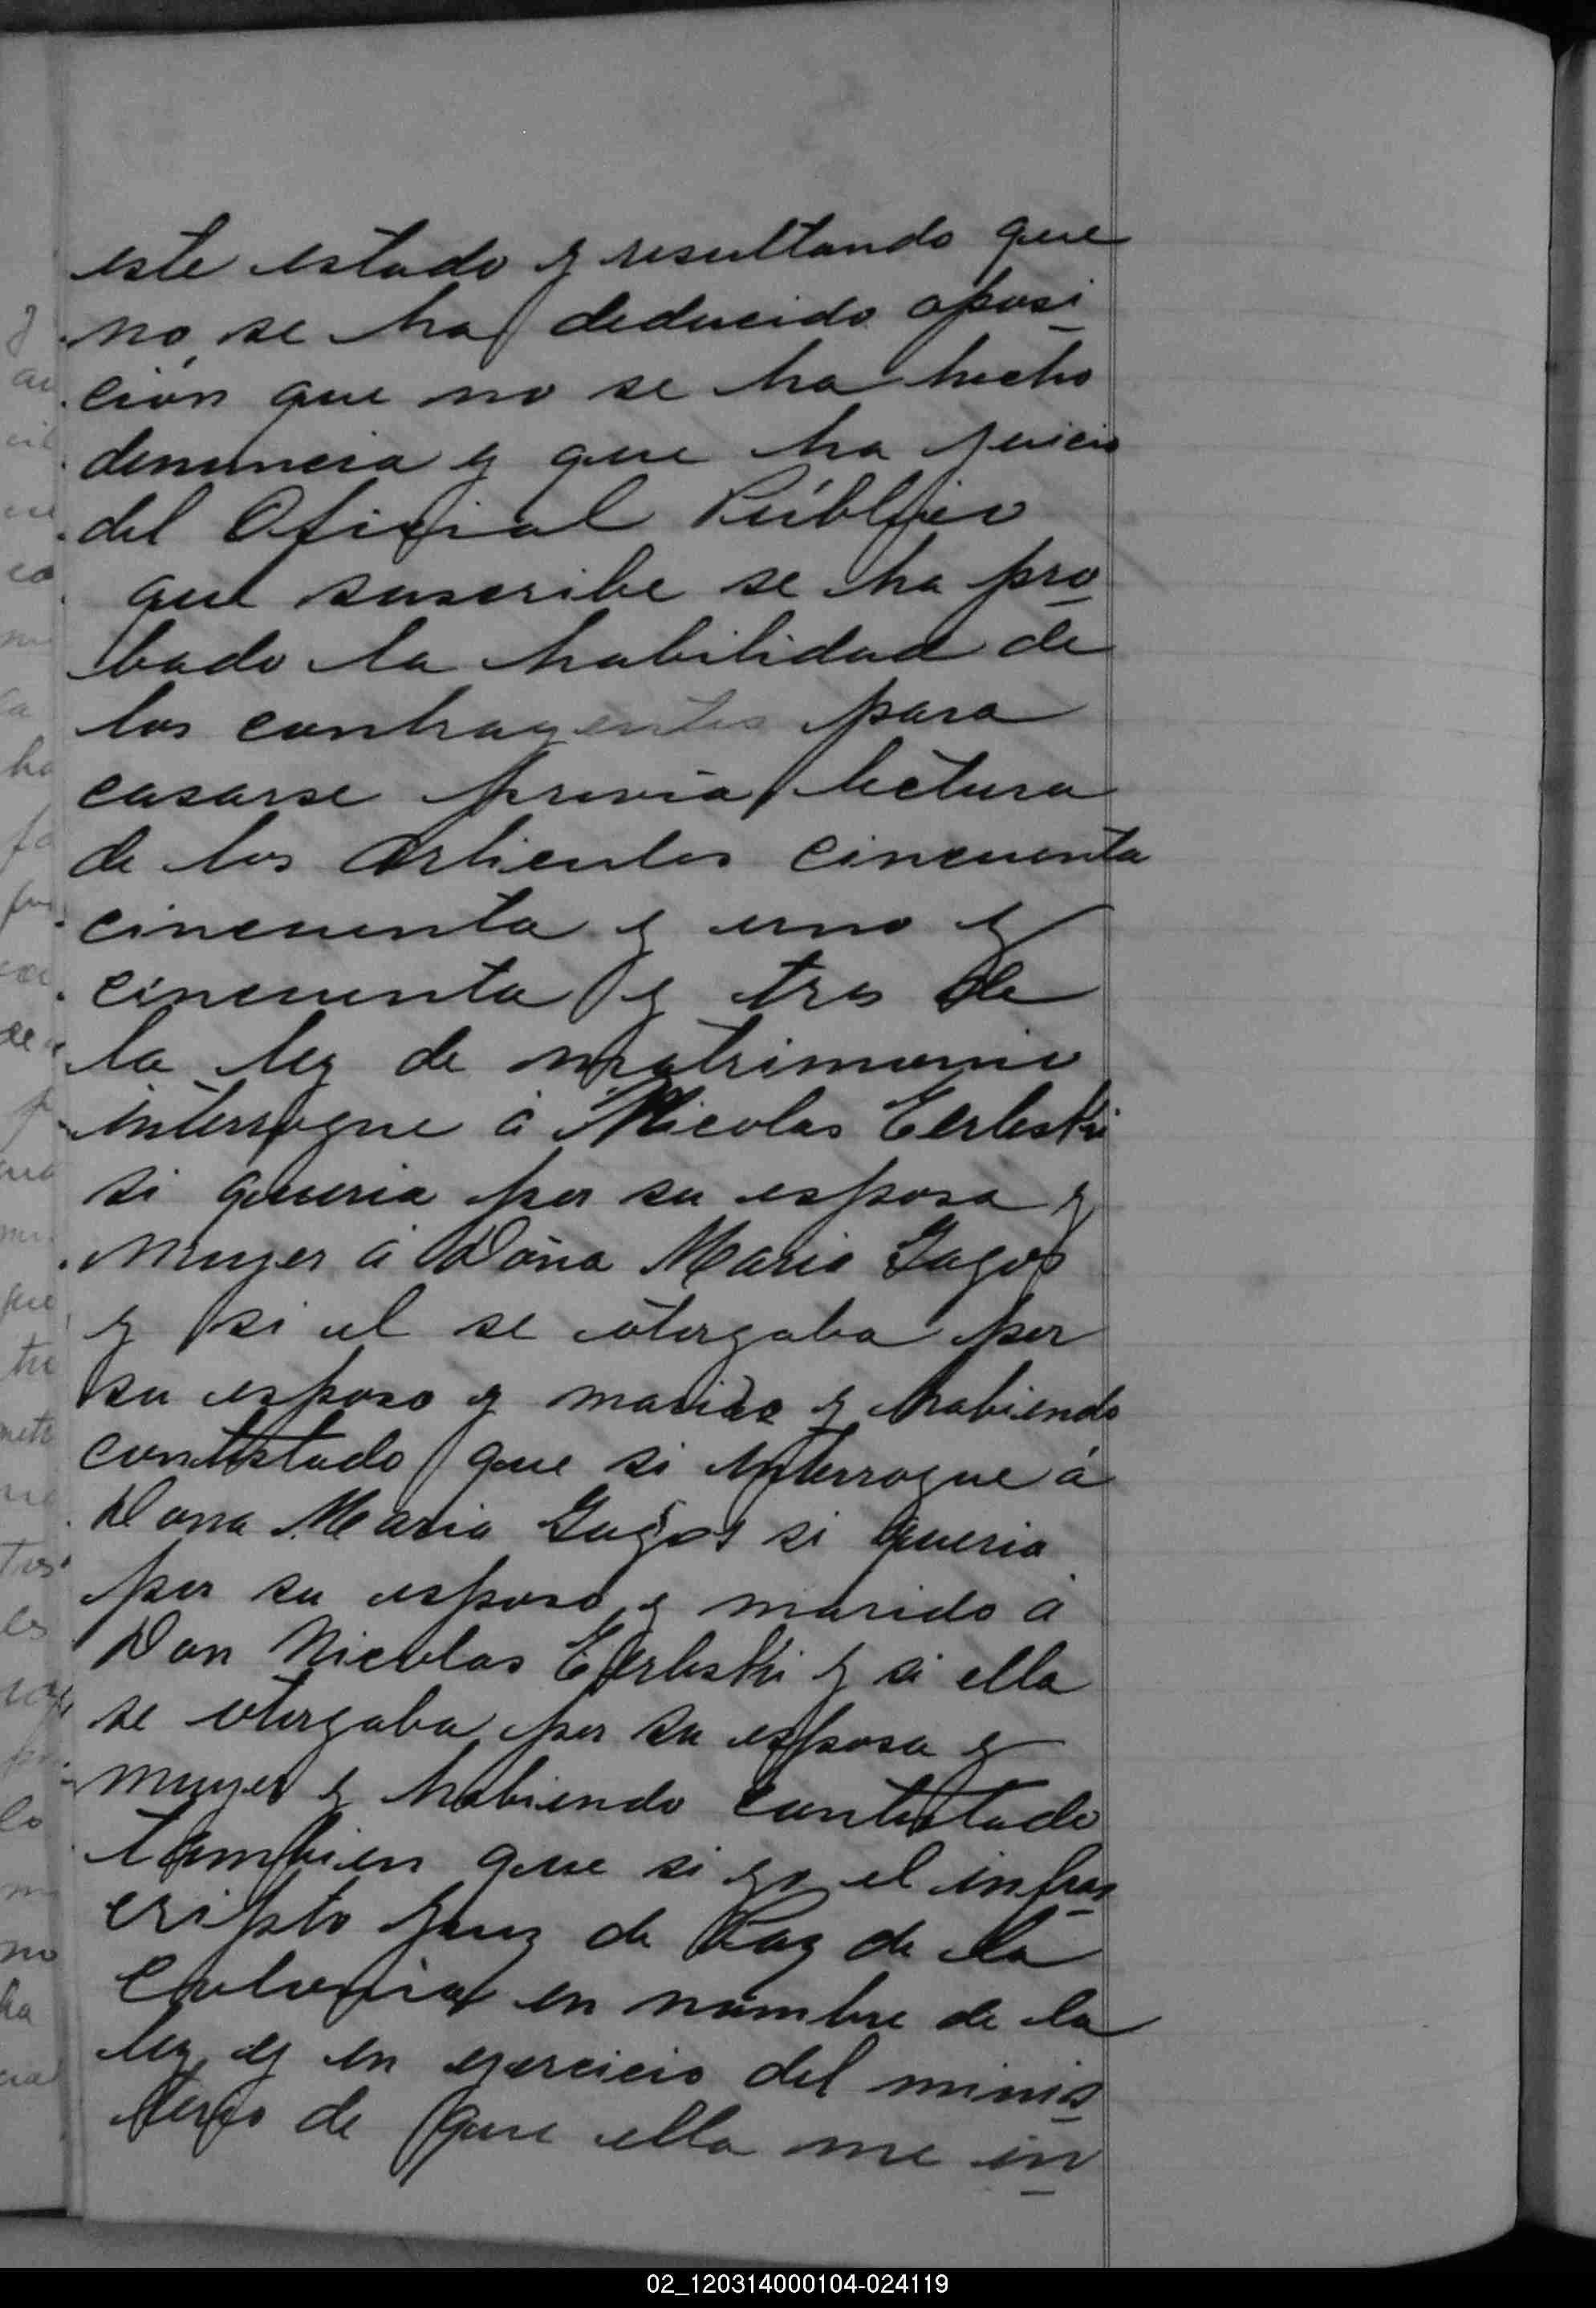 este estado y resultando que
no se ha deducido oposi
ción que no se ha hecho
denuncia y que ha juicio
del Oficial Público
que suscribe se ha pro
bado la habilidad de
los contrayentes para
casarse previa lectura
de los Articulos cincuenta
cincuenta y uno y
cincuenta y tres de
la ley de matrimonio
interrogue á Nicolas Eerleski
si queria por su esposa y
muyer á Doña Maria Gagos
y si el se otorgaba por
su esposo y marido y habiendo
contestado que si interrogue á
Dona Maria Gagos si queria
por su esposo y marido á
Don Nicolas Eerleski y si ella
se otorgaba por su esposa y
muyer y habiendo contestado
tambien que si yo el infras
cripto Juez de Paz de la
Colonia en nombre de la
ley y en ejercicio del minis
terio de que ella me in
02_120314000104-024119